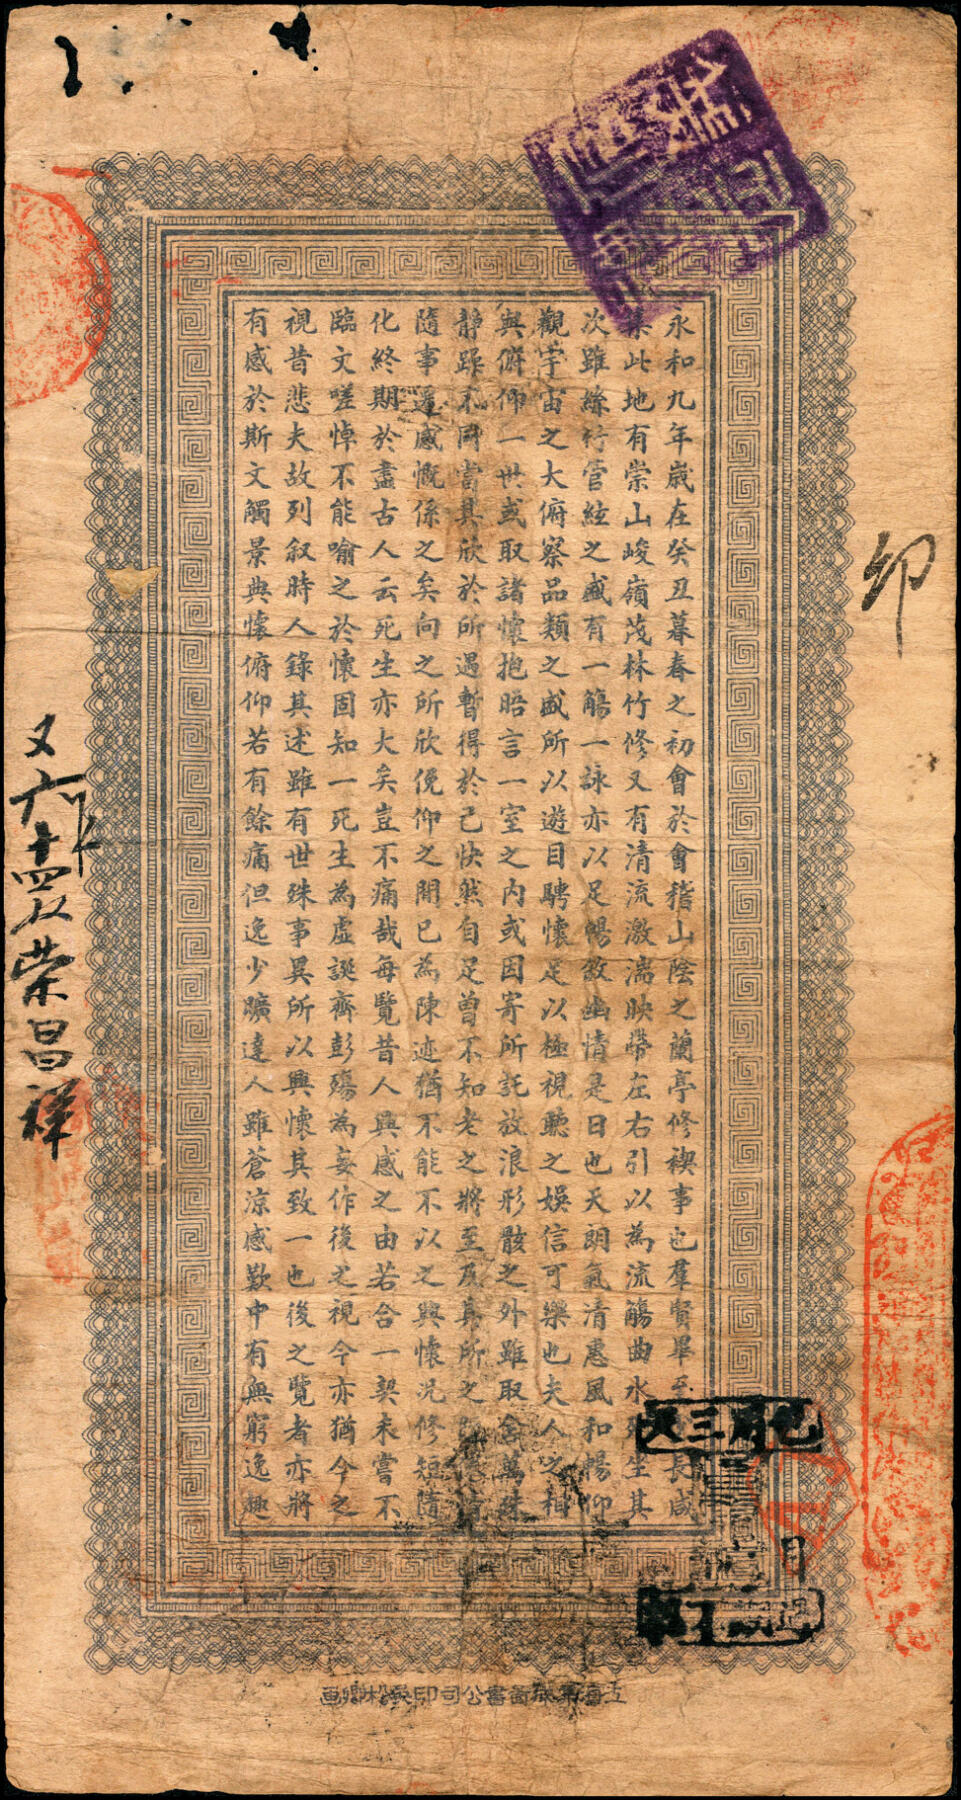 永和九年歲在癸丑暮春之初會於會稽山陰之蘭亭修禊事也羣賢畢至長咸
集此地有崇山峻嶺茂林竹修又有清流激湍映帶左右引以為流觴曲水列坐其
次雖絲竹管絃之盛有一觴一詠亦以足暢敘幽情是日也天朗氣清惠風和暢仰
觀宇宙之大俯察品類之盛所以遊目騁懷足以極視聽之娛信可樂也夫人之相
與俯仰一世或取諸懷抱晤言一室之內或因寄所託放浪形骸之外雖取舍萬殊
靜躁不同當其欣於所遇暫得於己快然自足曾不知老之將至及其所之既倦情
隨事遷感慨係之矣向之所欣俛仰之間已為陳迹猶不能不以之興懷況修短隨
化終期於盡古人云死生亦大矣豈不痛哉每覽昔人興感之由若合一契未嘗不
臨文嗟悼不能喻之於懷固知一死生為虛誕齊彭殤為妄作後之視今亦猶今之
視昔悲夫故列叙時人錄其述雖有世殊事異所以興懷其致一也後之覽者亦將
有感於斯文觸景興懷俯仰若有餘痛但逸少曠達人雖蒼涼感歎中有無窮逸趣
上海集成圖書公司印吳松卿画
印
月
又 十四 榮昌祥